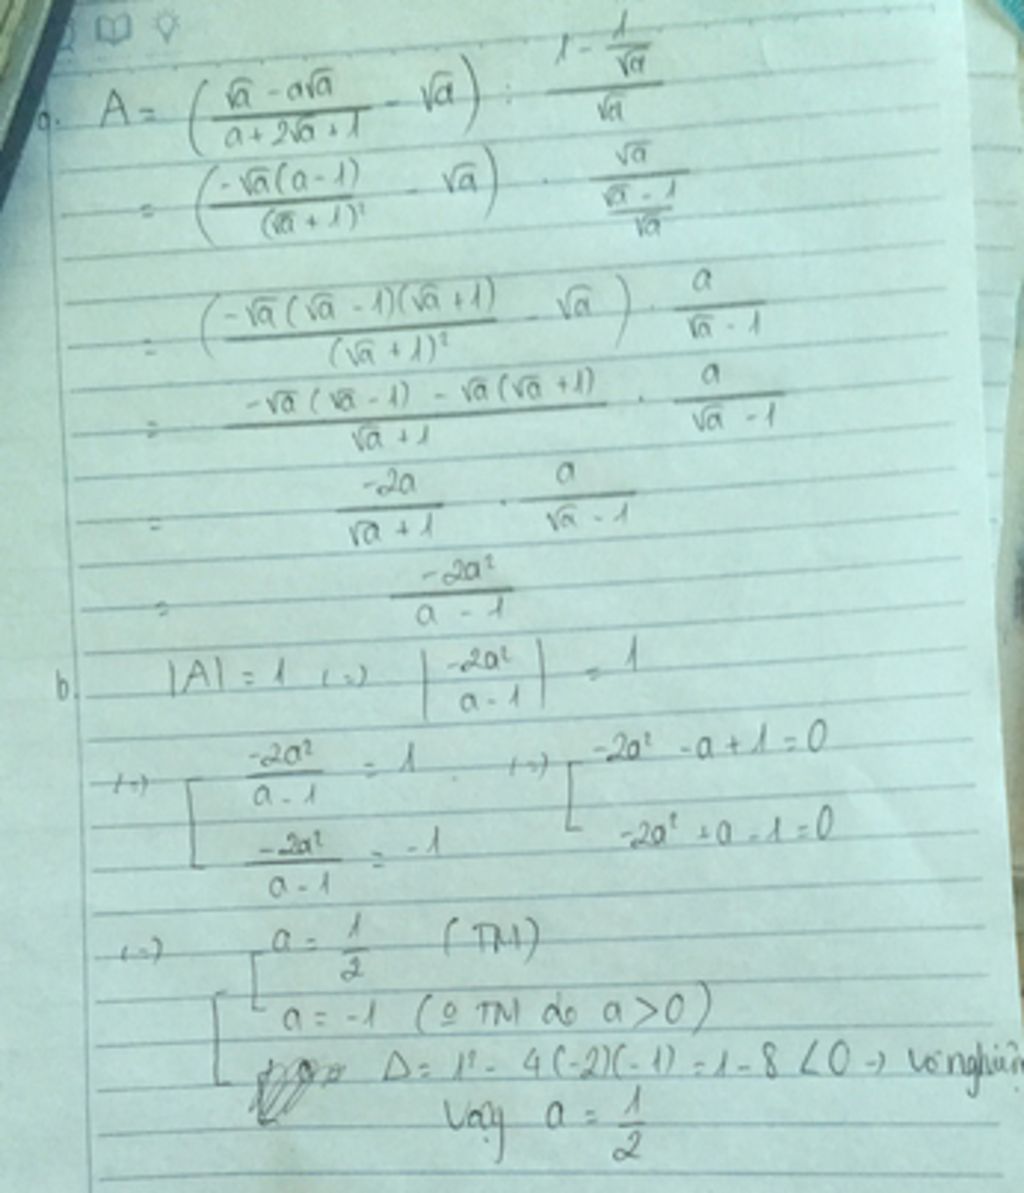 a. A = ((√a - a√a)/(a + 2√a + 1) - √a) : (1 - 1/√a)/√a
= ((-√a(a - 1))/(√a + 1)² - √a) · √a/((√a - 1)/√a)
= ((-√a(√a - 1)(√a + 1))/(√a + 1)² - √a) · a/(√a - 1)
= (-√a(√a - 1) - √a(√a + 1))/(√a + 1) · a/(√a - 1)
= -2a/(√a + 1) · a/(√a - 1)
= -2a²/(a - 1)
b. |A| = 1 (=) |-2a²/(a - 1)| = 1
(=) [ -2a²/(a - 1) = 1 (=) [ -2a² - a + 1 = 0
-2a²/(a - 1) = -1 -2a² + a - 1 = 0
(=) [ [ a = 1/2 (TM)
a = -1 (o TM do a > 0)
Δ = 1² - 4(-2)(-1) = 1 - 8 < 0 -> vô nghiệm
Vậy a = 1/2